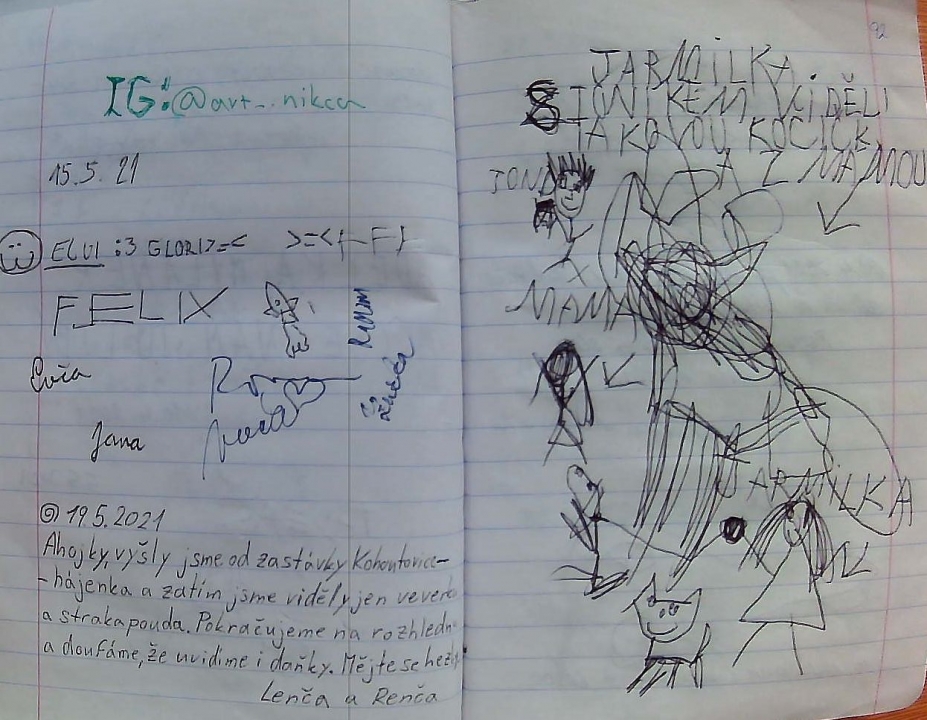 IG:@art_._nikca
15.5. 21
ELVI :3 GLORI >=< >=< (-F-)
FELIX
RADIM
Evča
Jana
19.5.2021
Ahojky, vyšly jsme od zastávky Kohoutovice-
-hájenka a zatím jsme viděly jen veverk
a strakapouda. Pokračujeme na rozhledn
a doufáme, že uvidíme i daňky. Mějte se hezky
Lenča a Renča
92
JARMILKA.
S TONIKEM VIDĚLI
TAKOVOU KOČIČK
A Z MÁMOU
TONDA
MAMA
JARMILKA